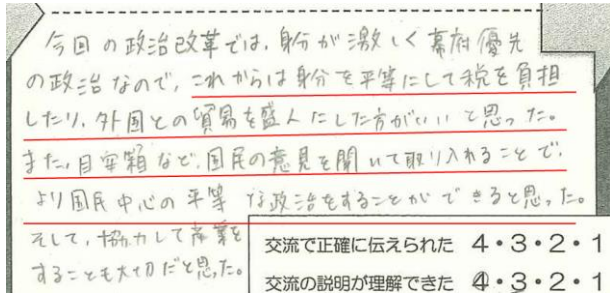 今回の政治改革では、身分が激しく幕府優先
の政治なので、これからは身分を平等にして税を負担
したり、外国との貿易を盛んにした方がいいと思った。
また、目安箱など、国民の意見を聞いて取り入れることで、
より国民中心の平等な政治をすることができると思った。
そして、協力して産業を
することも大切だと思った。
交流で正確に伝えられた 4・3・2・1
交流の説明が理解できた 4・3・2・1